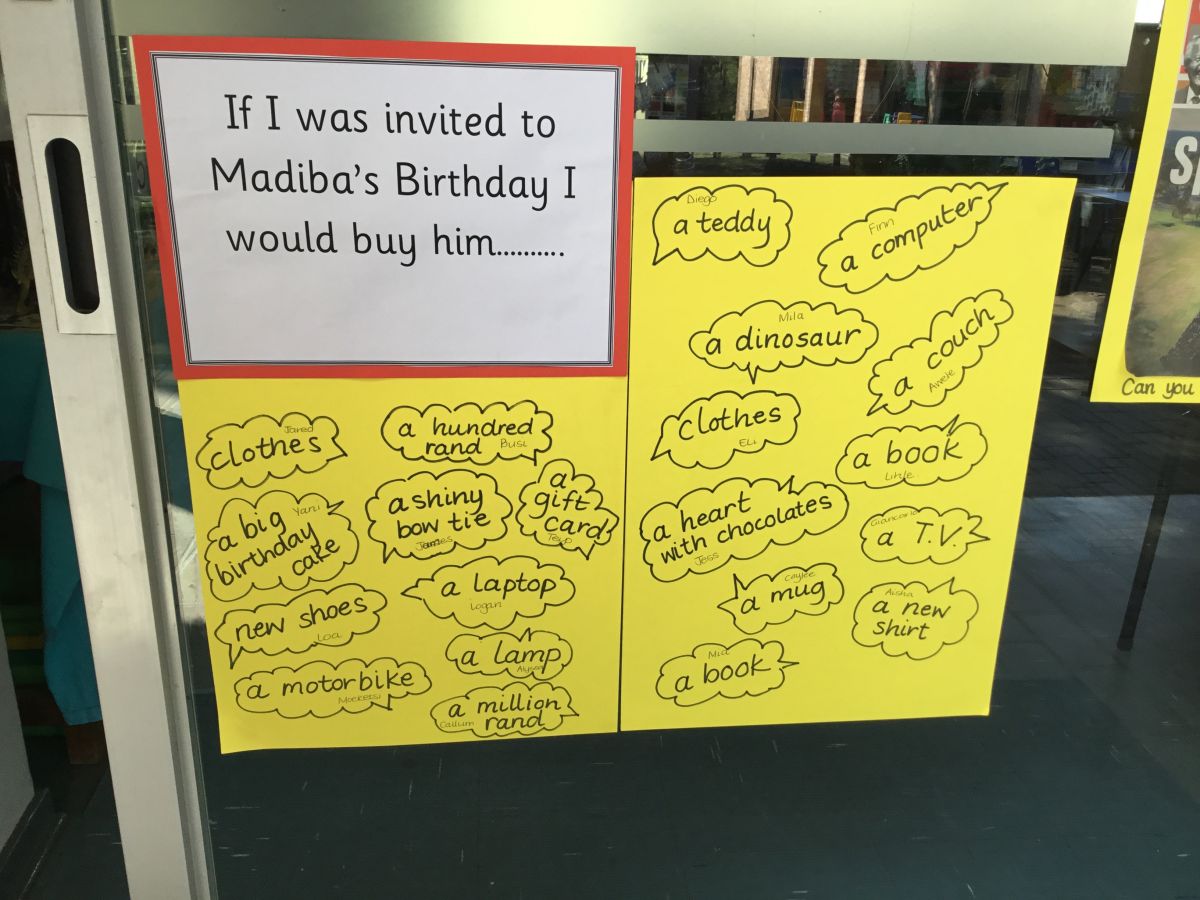 If I was invited to
Madiba's Birthday I
would buy him..........
Jared
clothes
a hundred
rand Busi
Yani
a big
birthday
cake
a shiny
bow tie
James
a
gift
card
Tebo
a laptop
Logan
new shoes
Loa
a lamp
Alyssa
a motorbike
a million
rand
Callum
Diego
a teddy
Finn
a computer
Mila
a dinosaur
a couch
clothes
Eli
a book
a heart
with chocolates
Jess
Giancarlo
a T.V.
Caylee
a mug
Aisha
a new
shirt
Mia
a book
Can you